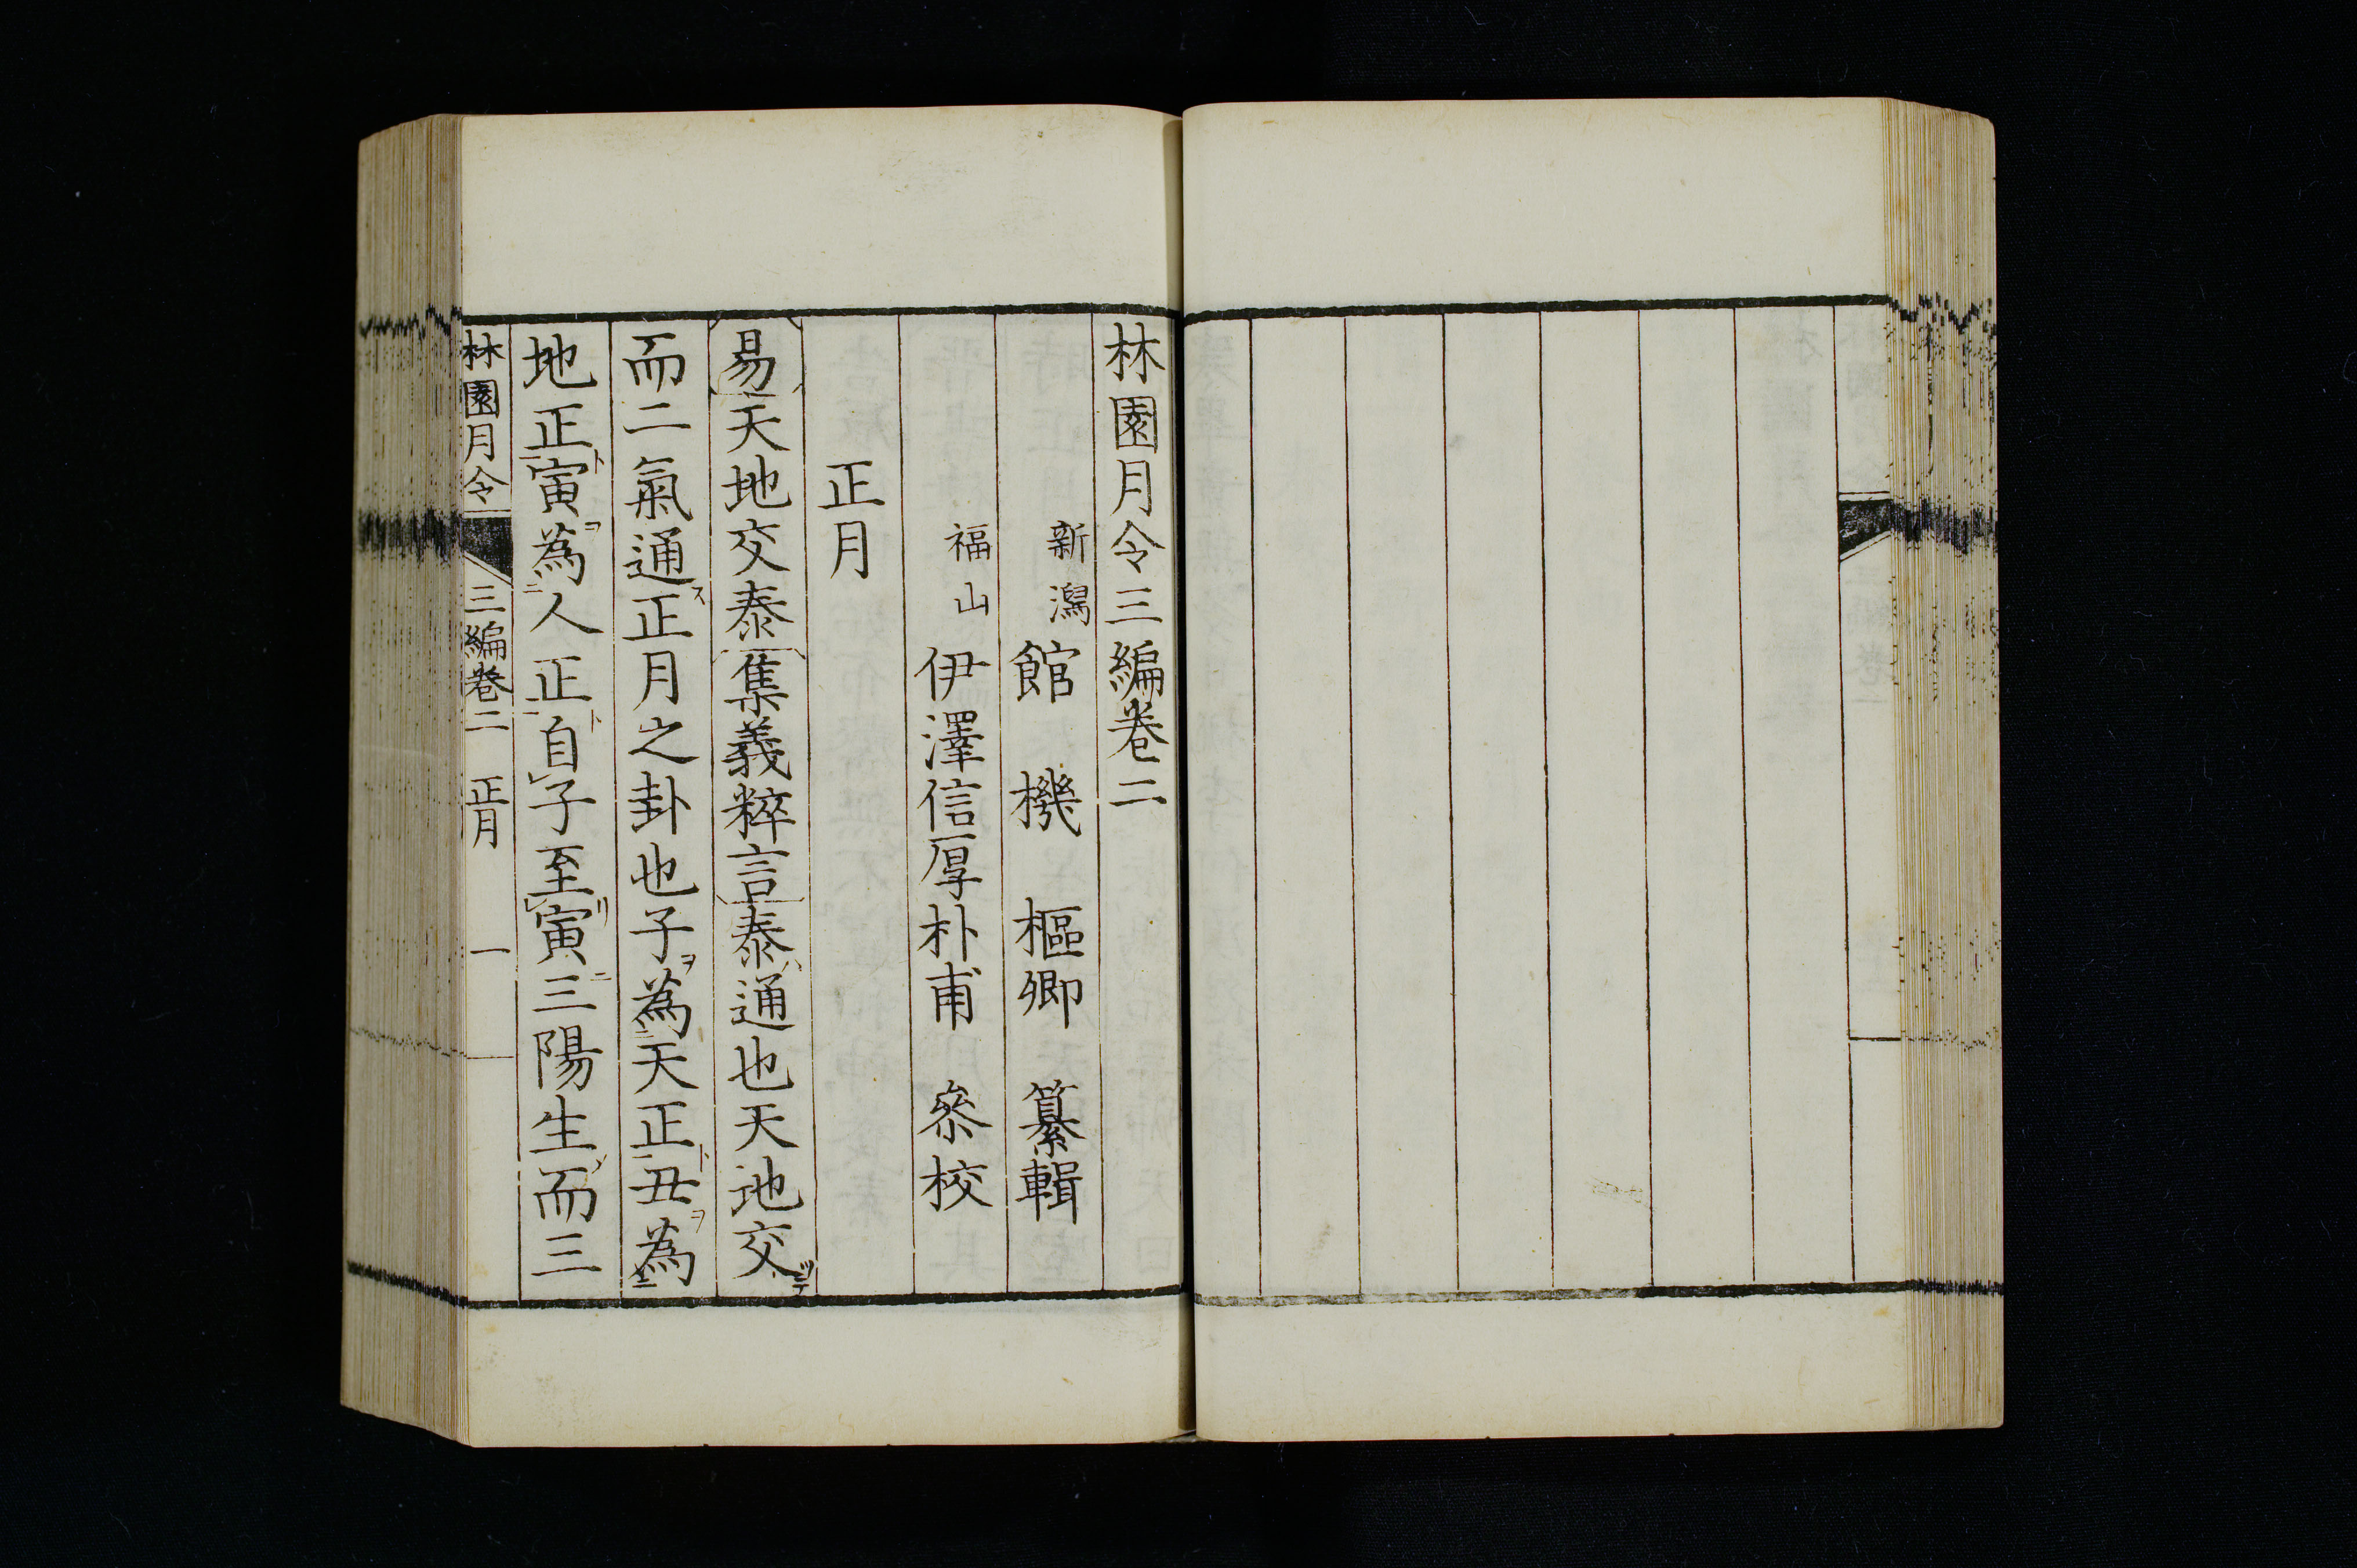 林園月令三編卷二
新潟 館 機 樞卿 纂輯
福山 伊澤信厚朴甫 叅校
正月
易天地交泰集義粹言泰通也天地交
而二氣通正月之卦也子為天正丑為
地正寅為人正自子至寅三陽生而三
林園月令 三編卷二 正月 一